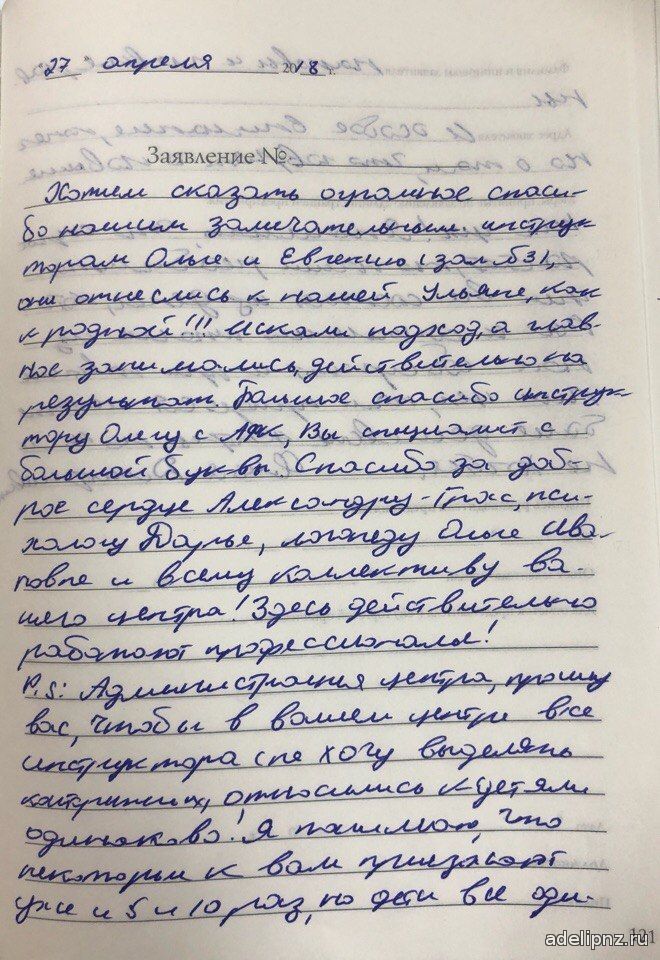 27 апреля 2018 г.
Заявление №
Хотим сказать огромное спаси-
бо нашим замечательным инструк
торам Ольге и Евгению (зал Б3),
они отнеслись к нашей Ульяне, как
к родной!!! Искали подход, а глав-
ное занимались, действительно на
результат. Большое спасибо инструк-
тору Олегу с АФК, Вы специалист с
большой буквы. Спасибо за доб-
рое сердце Александру-Гросс, пси-
хологу Дарье, логопеду Ольге Ива-
новне и всему коллективу ва-
шего центра! Здесь действительно
работают профессионалы!
P.S: Администрация центра, прошу
вас, чтобы в вашем центре все
инструктора (не хочу выделять
конкретных, относились к детям
одинаково! Я понимаю, что
некоторые к вам приезжают
уже и 5 и 10 раз, но дети все оди-
121
adelipnz.ru